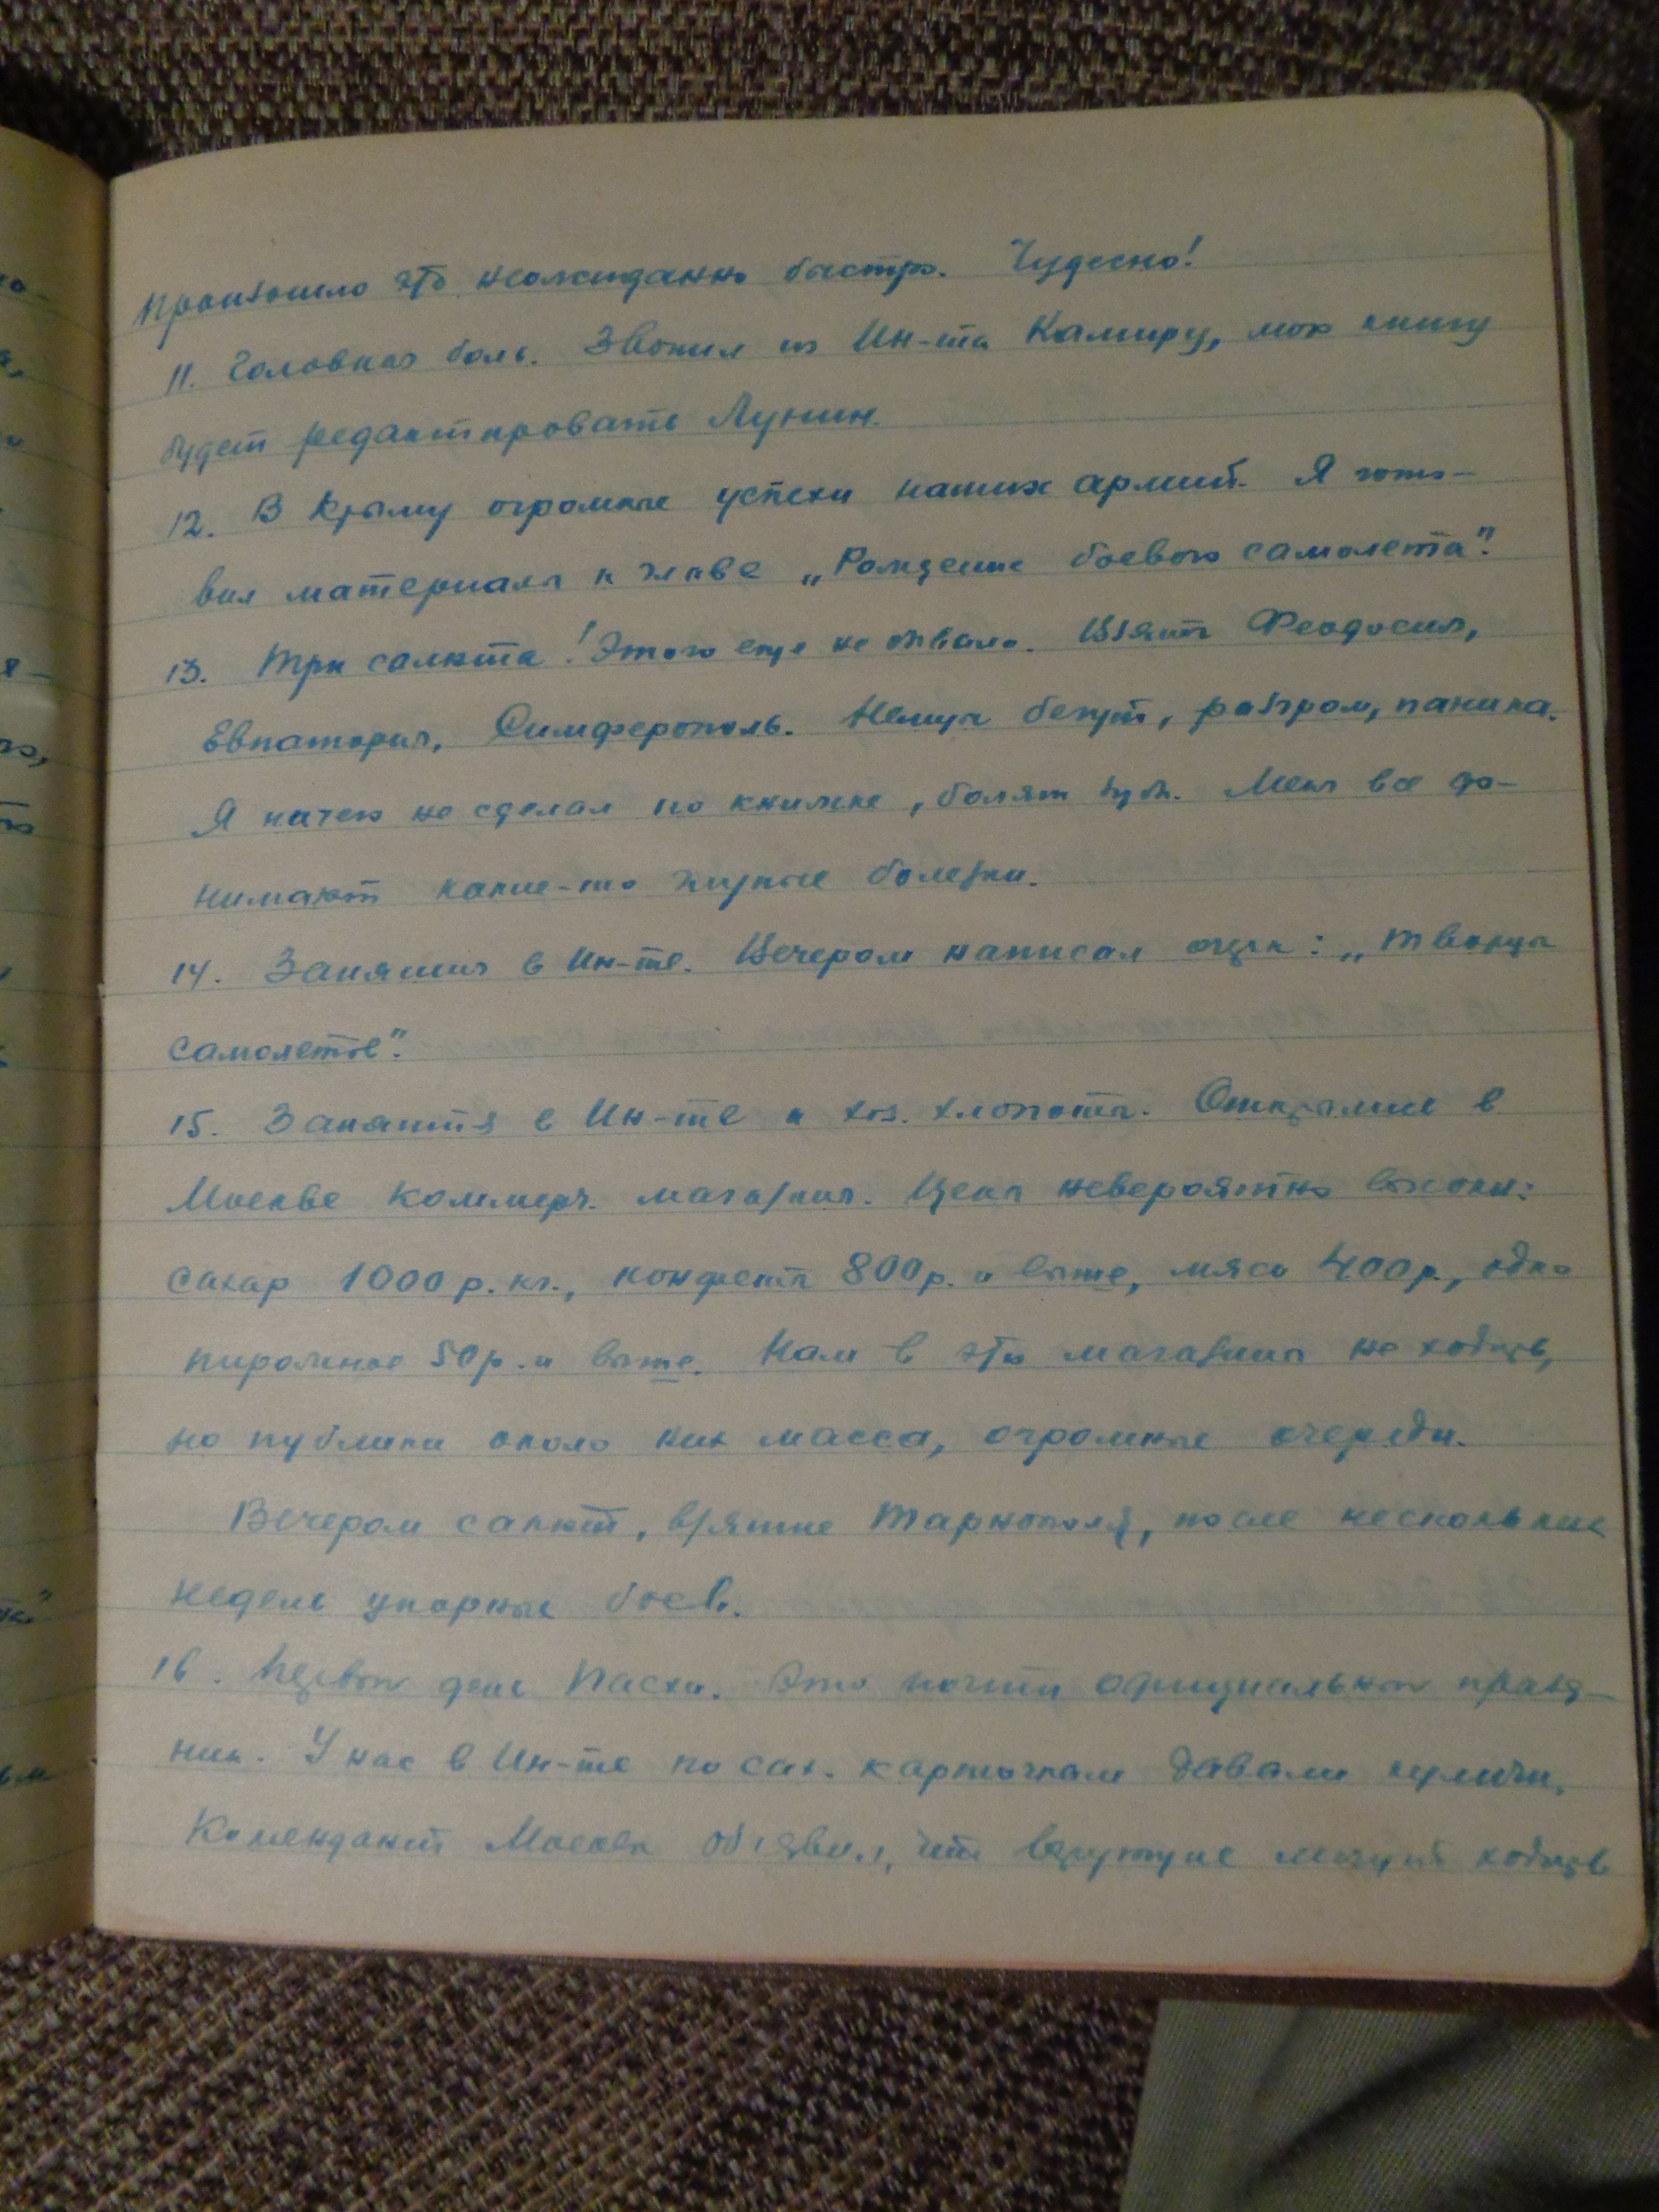 Произошло это неожиданно быстро. Чудесно!
11. Головная боль. Звонил из Ин-та Камиру, мою книгу
будет редактировать Лунин.
12. В Крыму огромные успехи наших армий. Я гото-
вил материалы к главе „Рождение боевого самолета".
13. Три салюта! Этого еще не бывало. Взяты Феодосия,
Евпатория, Симферополь. Немцы бегут, разгром, паника.
Я ничего не сделал по книжке, болят зубы. Меня все до-
нимают какие-то глупые болезни.
14. Занятия в Ин-те. Вечером написал очерк: „Творцы
самолетов".
15. Занятия в Ин-те и хоз. хлопоты. Открытие в
Москве коммерч. магазина. Цены невероятно высоки:
сахар 1000 р. кг., конфеты 800 р. и выше, мясо 400 р., одно
пирожное 50 р. и выше. Нам в эти магазины не ходить,
но публики около них масса, огромные очереди.
Вечером салют, взятие Тарнополя, после нескольких
недель упорных боев.
16. Первый день Пасхи. Это почти официальный празд-
ник. У нас в Ин-те по сах. карточкам давали куличи.
Комендант Москвы об'явил, что верующие могут ходить